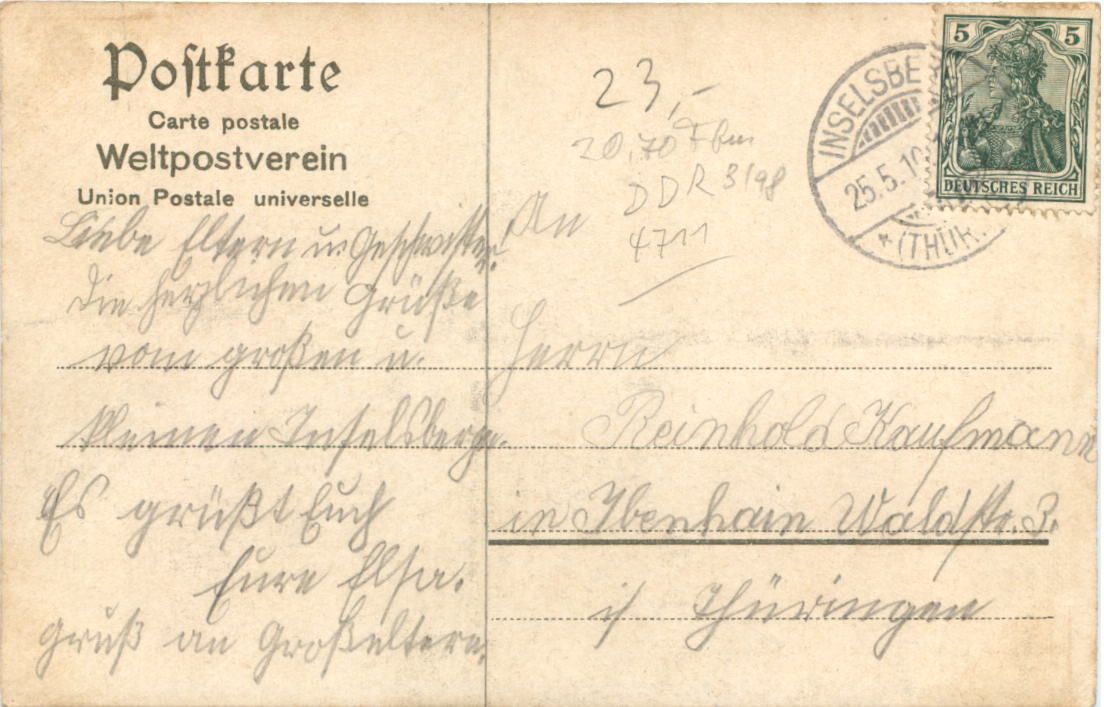 Postkarte
Carte postale
Weltpostverein
Union Postale universelle
Liebe Eltern u. Geschwister.
Die herzlichen Grüße
vom großen u.
kleinen Inselsberge.
Es grüßt Euch
Eure Elsa.
Gruß an Großeltern.
An
Herrn
Reinhold Kaufmann
in Ibenhain Waldstr. 3.
i/ Thüringen
23,-
20,70
DDR 3/98
4711
INSELSBE
25.5.10
* (THÜR.
5 5
DEUTSCHES REICH